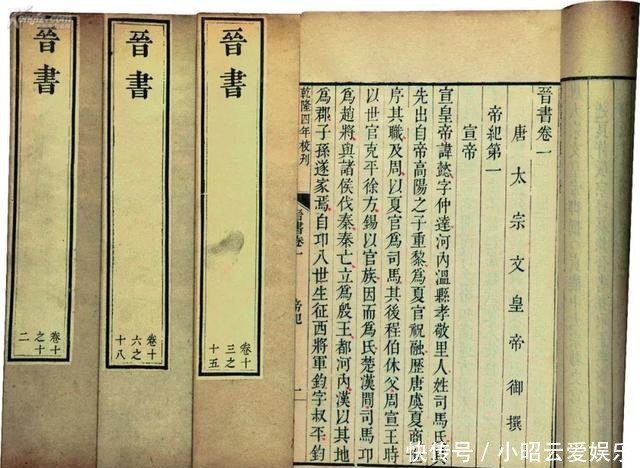 晉書卷一
唐太宗文皇帝御撰
帝紀第一
宣帝
宣皇帝諱懿字仲達河內溫縣孝敬里人姓司馬氏其
先出自帝高陽之子重黎爲夏官祝融歷唐虞夏商世
序其職及周以夏官爲司馬其後程伯休父周宣王時
以世官克平徐方錫以官族因而爲氏楚漢間司馬卬
爲趙將與諸侯伐秦秦亡立爲殷王都河內漢以其地
爲郡子孫遂家焉自卬八世生征西將軍鈞字叔平鈞
乾隆四年校刊
晉書卷一 帝紀 一
晉書
卷十
三之
十五
晉書
卷十
六之
十八
晉書
卷十
之十
二
快传号／小昭云爱娱乐